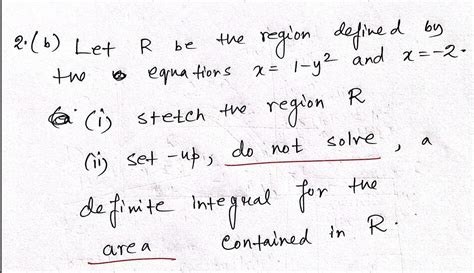 2.(b) Let R be the region defined by
the equations x = 1-y² and x = -2.
(i) stetch the region R
(ii) set-up, do not solve, a
definite integral for the
area contained in R.